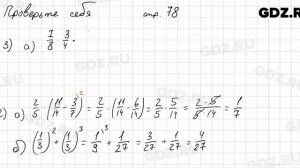 Проверьте себя стр. 78
GDZ.RU
3) а) 7/8 · 3/4 ·
2) а) 2/5 · (11/14 − 3/7) = 2/5 · (11/14 − 6/14) = 2/5 · 5/14 = 2·5/5·14 = 1/7
б) (1/3)² + (1/3)³ = 1/9 + 1/27 = 3/27 + 1/27 = 4/27
GDZ.RU